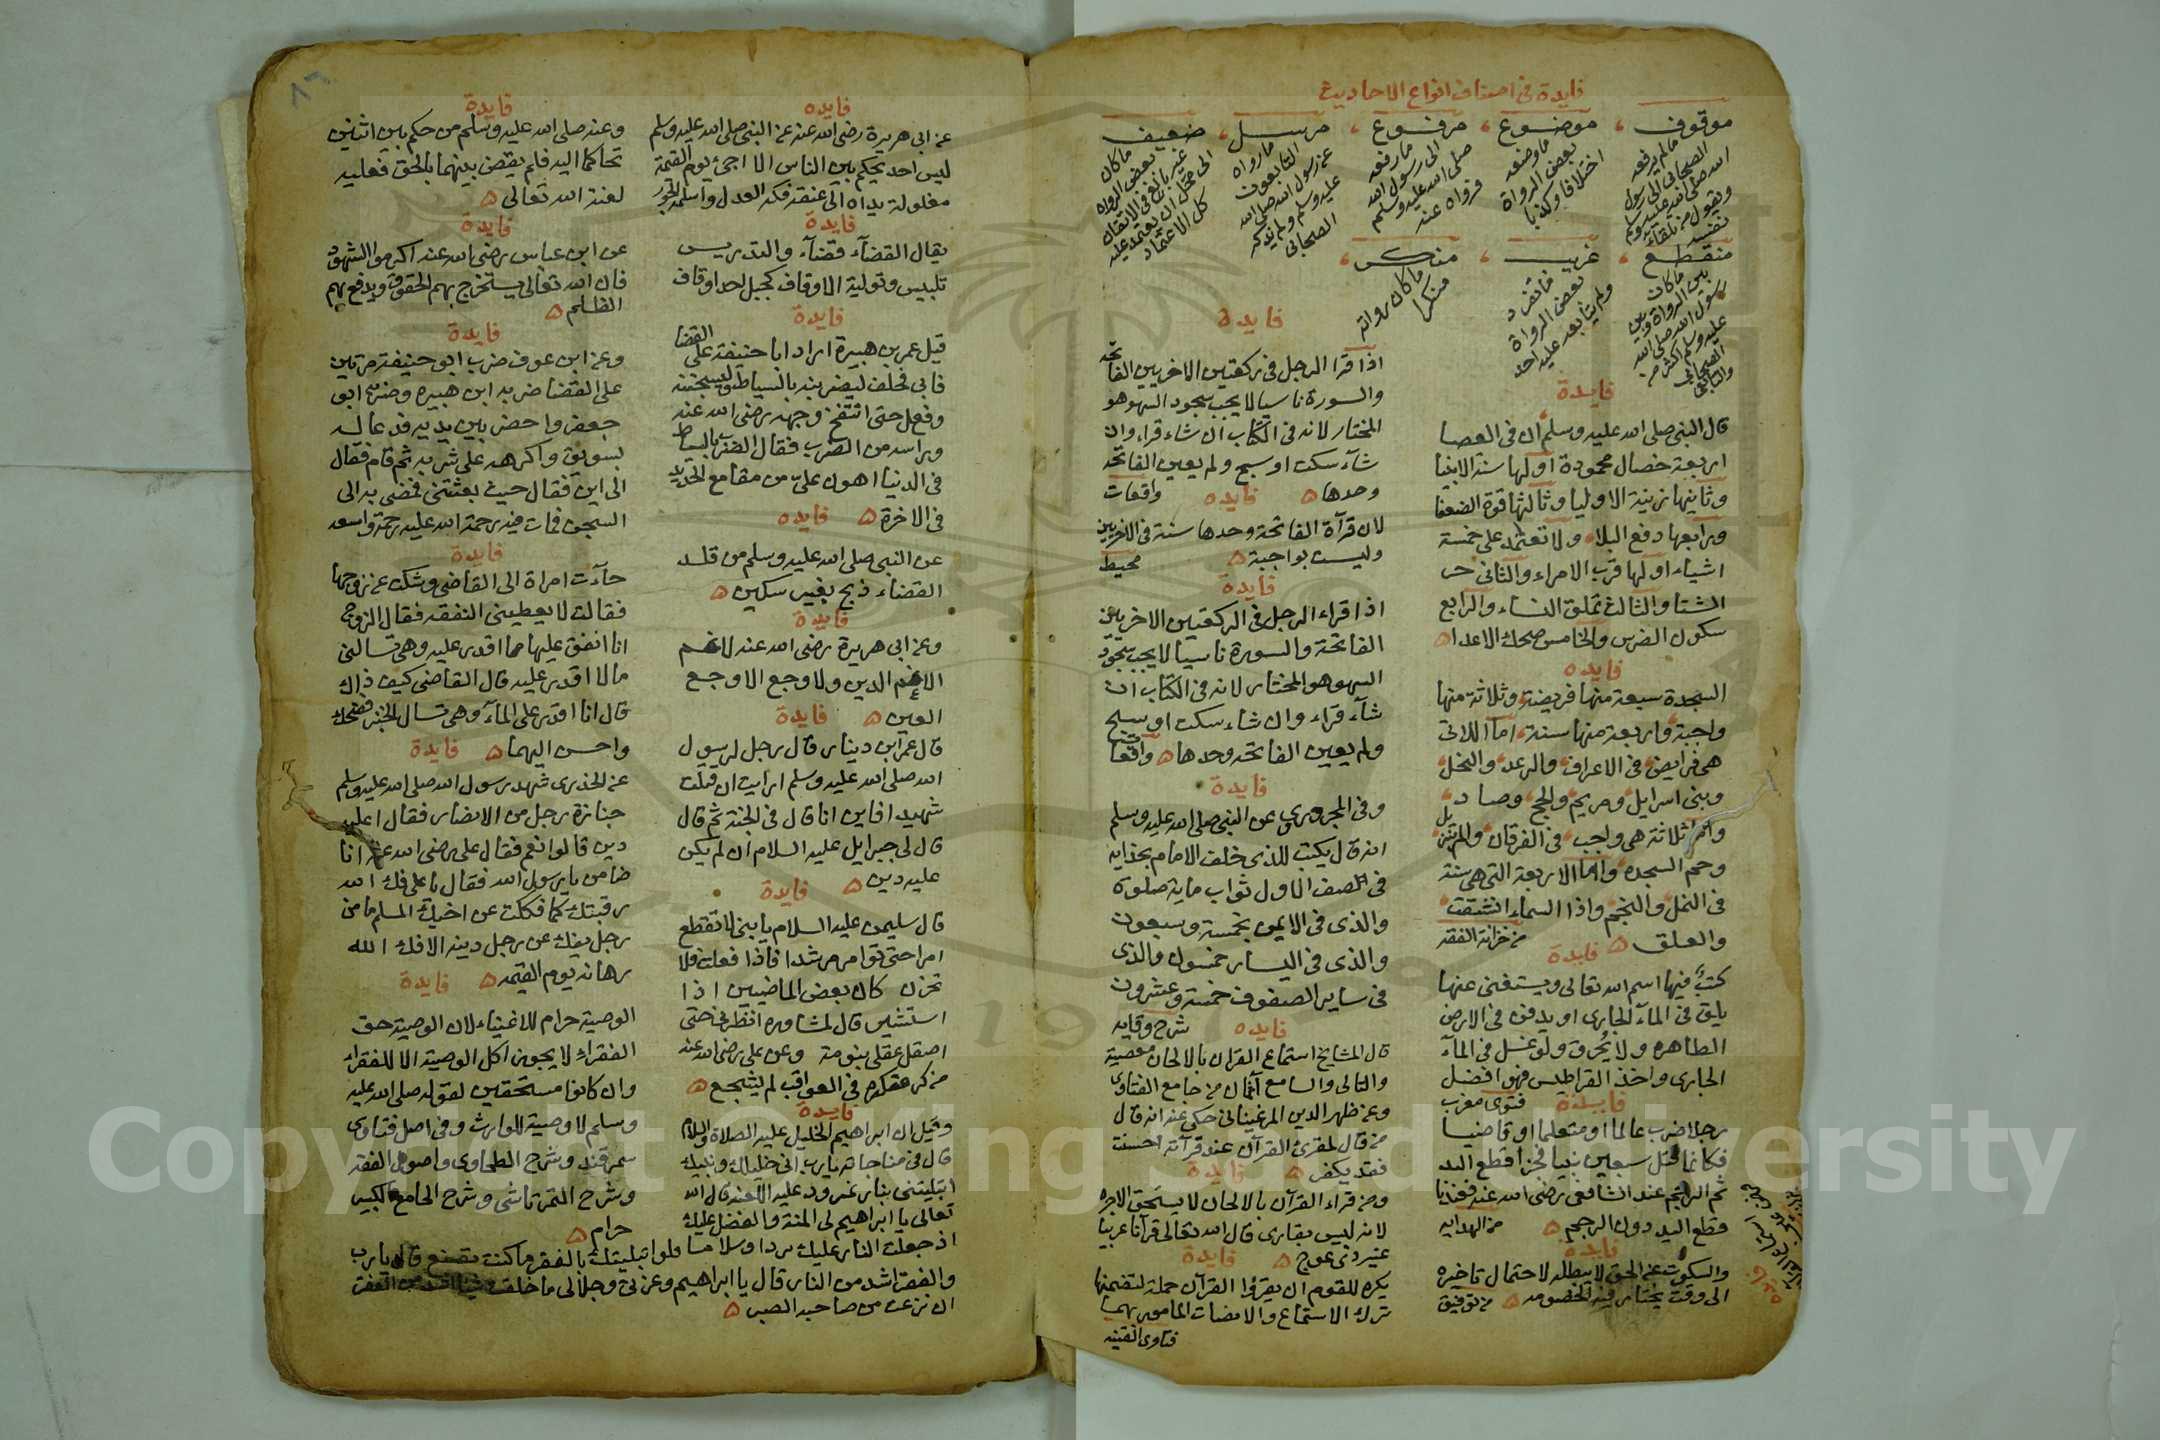 فايدة في اصناف انواع الاحاديث
موقوف
ما لم يرفعه
الصحابي الى رسول
الله صلى الله عليه وسلم
ويقول من تلقاء
نفسه
موضوع
ما وضعه
بعض الرواة
اختلافا وكذبا
مرفوع
ما رفعه
الى رسول الله
صلى الله عليه وسلم
فرواه عنه
مرسل
ما رواه
التابعون
عن رسول الله صلى الله
عليه وسلم ولم يذكر
الصحابي
ضعيف
ما كان
بعض الرواة
غير بالغ في الاتقان
الى محل ان يعتمد عليه
كل الاعتماد
منقطع
ما كان
بين الرواة وبين
رسول الله صلى الله
عليه وسلم اكثر من
الصحابي
والتابعي
غريب
ما تفرد
بعض الرواة
ولم يتابعه عليه احد
منكر
ما كان رواته
منكرا
فايدة
قال النبي صلى الله عليه وسلم ان في العصا
اربعة خصال محمودة اولها سنة الانبيا
وثانيها زينة الاوليا وثالثها قوة الضعفا
ورابعها دفع البلاء ولا تعتمد على خمسة
اشياء اولها قرب الامراء والثاني حر
الشتا والثالث تملق النساء والرابع
سكون الضرس والخامس ضحك الاعدا
فايده
السجدة سبعة منها فريضة وثلاثة منها
واجبة واربعة منها سنة اما اللاتي
هي فرايض في الاعراف والرعد والنحل
وبني اسرايل ومريم والحج وصاد
واما ثلاثة هي واجب في الفرقان والم تنزيل
وحم السجده واما الاربعة التي هي سنة
في النمل والنجم واذا السماء انشقت
والعلق من خزانة الفقه
فايدة
كتب فيها اسم الله تعالى ويستغنى عنها
يلقى في الماء الجاري او يدفن في الارض
الطاهره ولا يحرق ولو غسل في الماء
الجاري واخذ القراطيس فهو افضل
فايدة فتوى مغرب
رجل ضرب عالما او متعلما او قاضيا
فكانما قتل سبعين نبيا فجزا قطع اليد
ثم الرجم عند الشافعي رضي الله عنه فعندنا
قطع اليد دون الرجم من الهدايه
فايده
والسكوت عن الحق لا يبطله لاحتمال تاخيره
الى وقت يختار فيه الخصومه من توفيق
فايدة
اذا قرا الرجل في ركعتين الاخريين الفاتحه
والسورة ناسيا لا يجب سجود السهو هو
المختار لانه في الكتاب ان شاء قراء وان
شاء سكت او سبح ولم يعين الفاتحه
وحدها فايده واقعات
لان قرآة الفاتحة وحدها سنة في الاخريين
وليست بواجبة محيط
فايدة
اذا قراء الرجل في الركعتين الاخريين
الفاتحة والسورة ناسيا لا يجب سجود
السهو هو المختار لانه في الكتاب ان
شاء قراء وان شاء سكت او سبح
ولم يعين الفاتحه وحدها واقعات
فايدة
وفي عن النبي صلى الله عليه وسلم
انه قال يكتب للذي خلف الامام بحذايه
في الصف الاول ثواب ماية صلوة
والذي في الايمن بخمسة وسبعون
والذي في اليسار خمسون والذي
في ساير الصفوف خمسة وعشرون
فايده شرح وقايه
قال المشايخ استماع القران بالالحان معصية
والتالي والسامع آثمان من جامع الفتاوى
وعن ظهر الدين المرغيناني حكي عنه انه قال
من قال لمقرئ القرآن عند قرآته احسنت
فقد يكفر فايدة
ومن قراء القرآن بالالحان لا يستحق الاجره
لانه ليس بقاري قال الله تعالى قرآنا عربيا
غير ذي عوج فايدة
يكره للقوم ان يقرؤا القرآن جملة لتضمنها
ترك الاستماع والانصات المامور بهما
فتاوى القنيه
٨٦
فايده
عن ابي هريرة رضي الله عنه عن النبي صلى الله عليه وسلم
ليس احد يحكم بين الناس الا اجئ يوم القيمة
مغلولة يداه الى عنقه فكه العدل واسلمه الجور
فايدة
يقال القضآء قضآء والتدريس
تلبيس وتولية الاوقاف كجبل احد اوقاف
فايدة
قيل عمر بن هبيرة اراد ابا حنيفة على القضا
فابى فحلف ليضربنه بالسياط وليسجننه
وفعل حتى انتفخ وجهه رضي الله عنه
وراسه من الضرب فقال الضرب بالسياط
في الدنيا اهون علي من مقامع الحديد
في الاخرة فايده
عن النبي صلى الله عليه وسلم من قلد
القضاء ذبح بغير سكين
فايدة
وعن ابي هريرة رضي الله عنه لا غم
الا غم الدين ولا وجع الا وجع
العين فايدة
قال عمر ابن دينار قال رجل لرسول
الله صلى الله عليه وسلم ارايت ان قتلت
شهيدا فاين انا قال في الجنة ثم قال
قال لي جبرايل عليه السلام ان لم يكن
عليه دين فايدة
قال سليمن عليه السلام يا بني لا تقطع
امرا حتى تؤامر مرشدا فاذا فعلت فلا
تحزن كان بعض الماضيين اذا
استشير قال لمشاوره انظرني حتى
اصقل عقلي بنومة وعن علي رضي الله عنه
من كر عقكره في العواقب لم يشجع
فايدة
وقيل ان ابراهيم الخليل عليه الصلاة والسلام
قال في مناجاته يارب اني خليلك ونبيك
ابتليتني بنار نمرود عليه اللعنه قال الله
تعالى يا ابراهيم لي المنة والفضل عليك
اذ جعلت النار عليك بردا وسلاما فلو ابتليتك بالفقر ما كنت تصنع قال يا رب
والفقر اشد من النار قال يا ابراهيم وعزتي وجلالي ما خلقت شيا اشد من الفقر
ان نزعت من صاحبه الصبر
فايدة
وعنه صلى الله عليه وسلم من حكم بين اثنين
تحاكما اليه فلم يقض بينهما بالحق فعليه
لعنة الله تعالى
فايدة
عن ابن عباس رضي الله عنه اكرموا الشهود
فان الله تعالى يستخرج بهم الحقوق ويدفع بهم
الظلم
فايدة
وعن ابن عوف ضرب ابو حنيفة مرتين
على القضا ضربه ابن هبيره وضربه ابو
جعفر واحضر بين يديه فدعا له
بسويق واكرهه على شربه ثم قام فقال
الى اين فقال حيث بعثتني فمضى به الى
السجن فمات فيه رحمة الله عليه رحمة واسعه
فايدة
جآءت امراة الى القاضي وشكت عن زوجها
فقالت لا يعطيني النفقه فقال الزوج
انا انفق عليها مما اقدر عليه وهي تسالني
مالا اقدر عليه قال القاضي كيف ذاك
قال انا اقدر على المآء وهي تسال الخبز فضحك
واحسن اليهما فايدة
عن الخذري شهد رسول الله صلى الله عليه وسلم
جنازة رجل من الانصار فقال اعليه
دين قالوا نعم فقال علي رضي الله عنه انا
ضامن يا رسول الله فقال يا علي فك الله
رقبتك كما فككت عن اخيك المسلم ما من
رجل يفك عن رجل دينه الا فك الله
رهانه يوم القيمه فايدة
الوصية حرام للاغنياء لان الوصية حق
الفقراء لا يجوز اكل الوصية الا للفقراء
وان كانوا مستحقين لقوله صلى الله عليه
وسلم لا وصية للوارث وفي اصل فتاوى
سمرقند وشرح الطحاوي واصول الفقه
وشرح التمرتاشي وشرح الجامع الكبير
حرام
Copyright © King Saud University